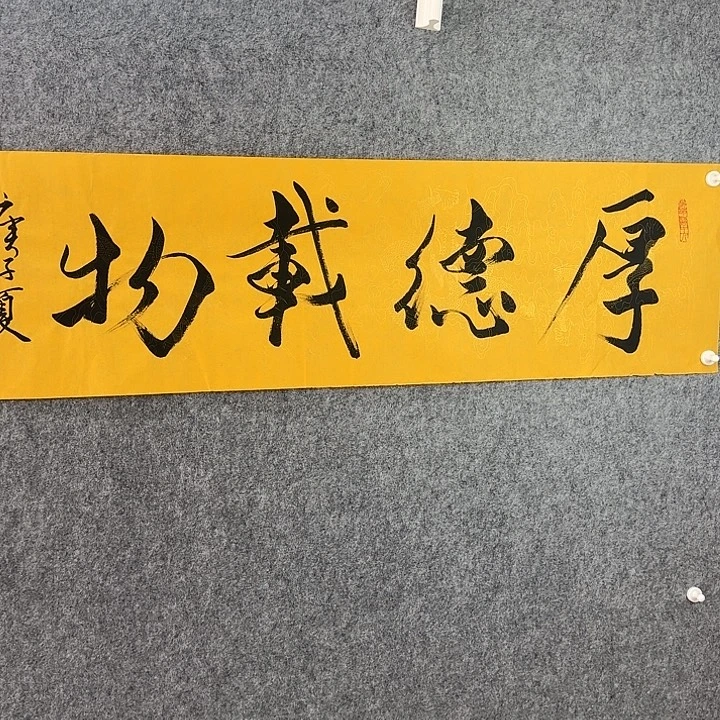 厚德載物
庚子夏